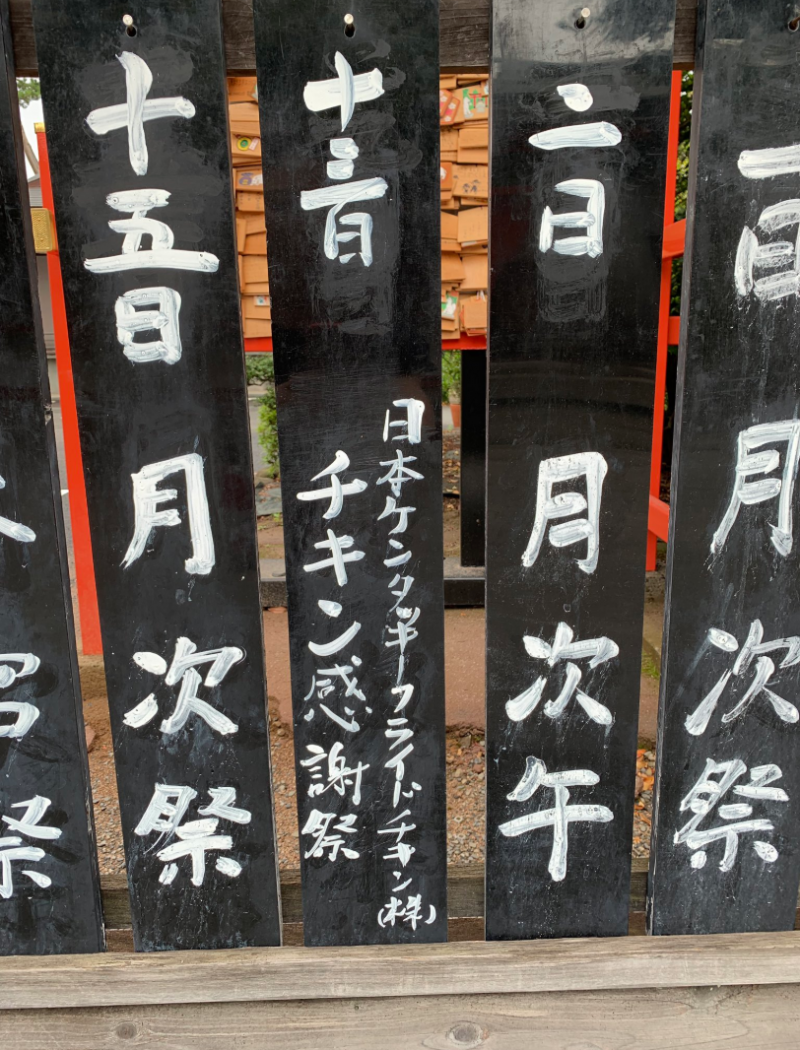 一日 月次祭
二日 月次午
十三日
日本ケンタッキーフライドチキン(株)
チキン感謝祭
十五日 月次祭
祭